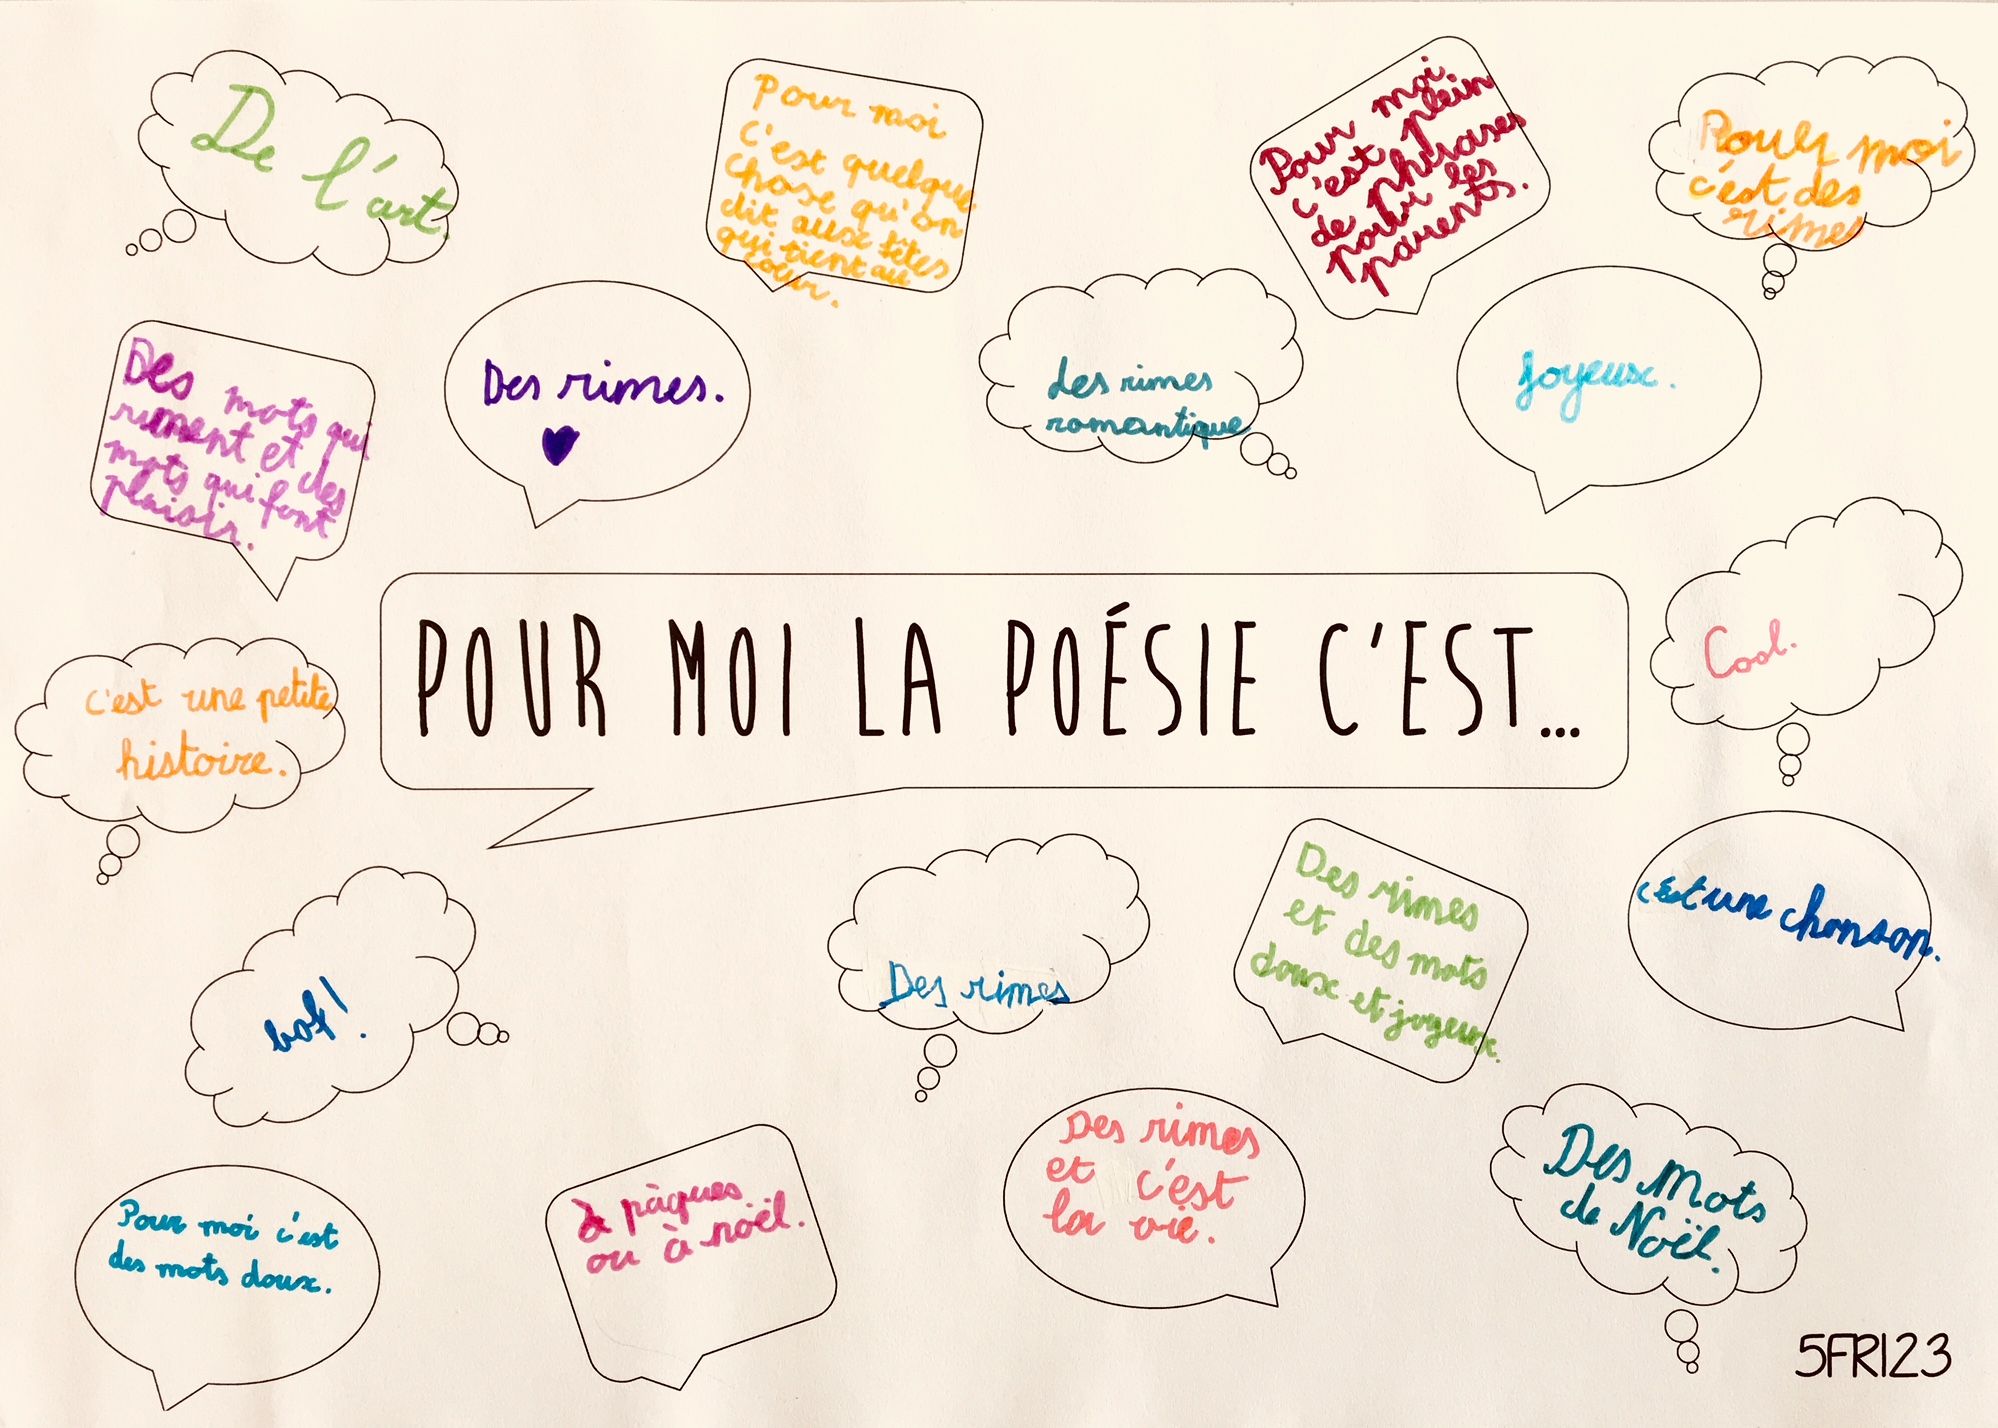 De l'art.
Pour moi
C'est quelque
chose qu'on
dit aux fêtes
qui tient au
cœur.
Pour moi
c'est plein
de phrases
parlui les
parents.
Pour moi
c'est des
rimes
Des mots qui
riment et des
mots qui font
plaisir.
Des rimes.
Les rimes
romantique
Joyeux.
POUR MOI LA POÉSIE C'EST...
Cool.
C'est une petite
histoire.
bof!
Des rimes
Des rimes
et des mots
doux et joyeux.
c'est une chanson.
Pour moi c'est
des mots doux.
à pâques
ou à noël.
Des rimes
et c'est
la vie.
Des mots
de Noël.
5FRI23